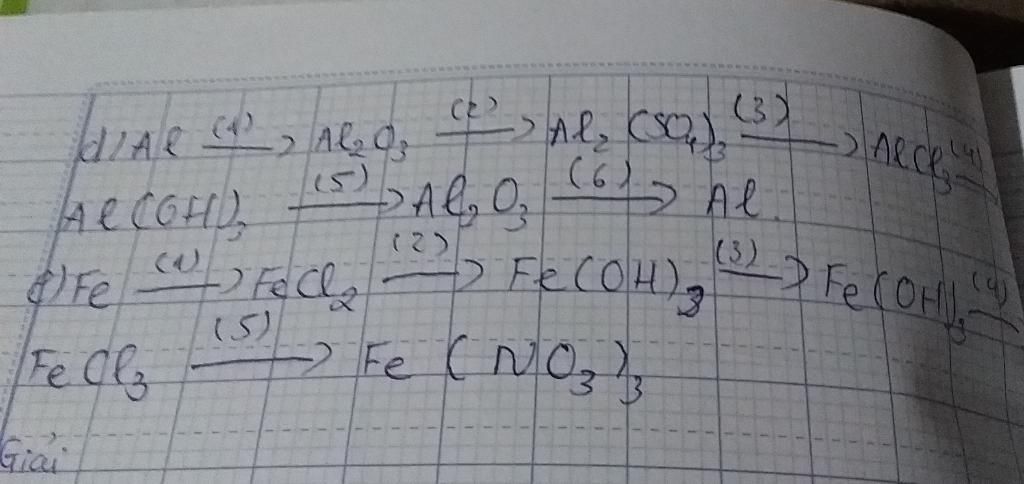 d) Al (1)→ Al₂O₃ (2)→ Al₂(SO₄)₃ (3)→ AlCl₃ (4)→
Al(OH)₃ (5)→ Al₂O₃ (6)→ Al.
f) Fe (1)→ FeCl₂ (2)→ Fe(OH)₂ (3)→ Fe(OH)₃ (4)→
FeCl₃ (5)→ Fe(NO₃)₃
Giải